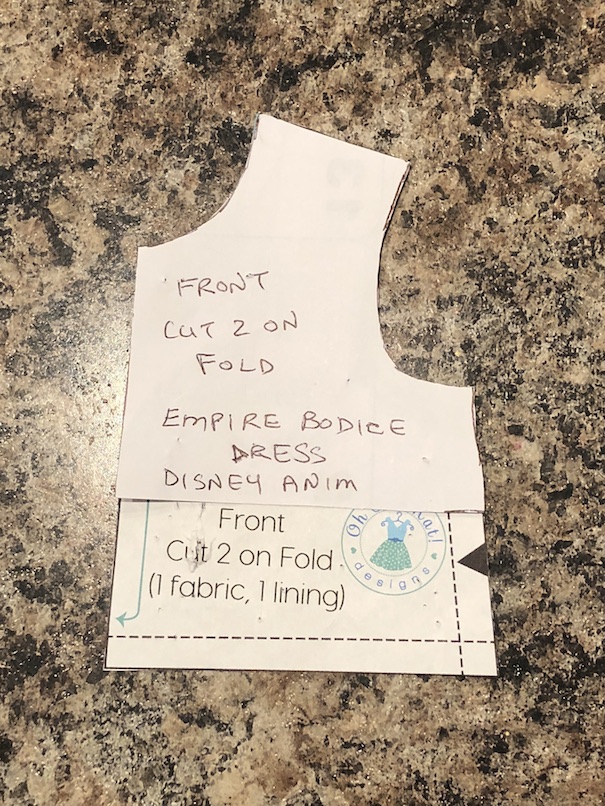 FRONT
CUT 2 ON
FOLD
EMPIRE BODICE
DRESS
DISNEY ANIM
Front
Cut 2 on Fold
(1 fabric, 1 lining)
Oh
designs